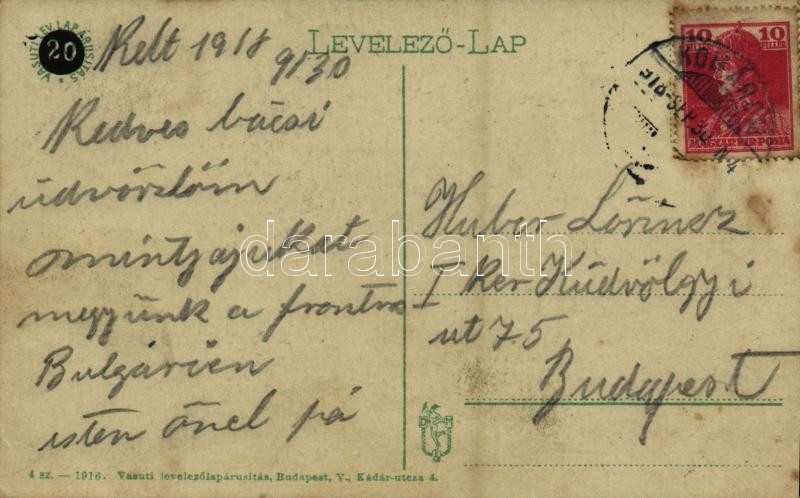 VASUTI LEV. LAP ÁRUSITÁS
20
LEVELEZŐ-LAP
10 10
MAGYAR KIR. POSTA
918 SEP 30
Kelt 1918
9/30
Kedves bácsi
üdvözlöm
mintzájukat
megyünk a frontra
Bulgárien
isten önel pá
Huber Lőrincz
I ker Kűdvölgyi
ut 75
Budapest
darabanth
4 sz. — 1916. Vasuti levelezőlapárusitás, Budapest, V., Kádár-utcza 4.